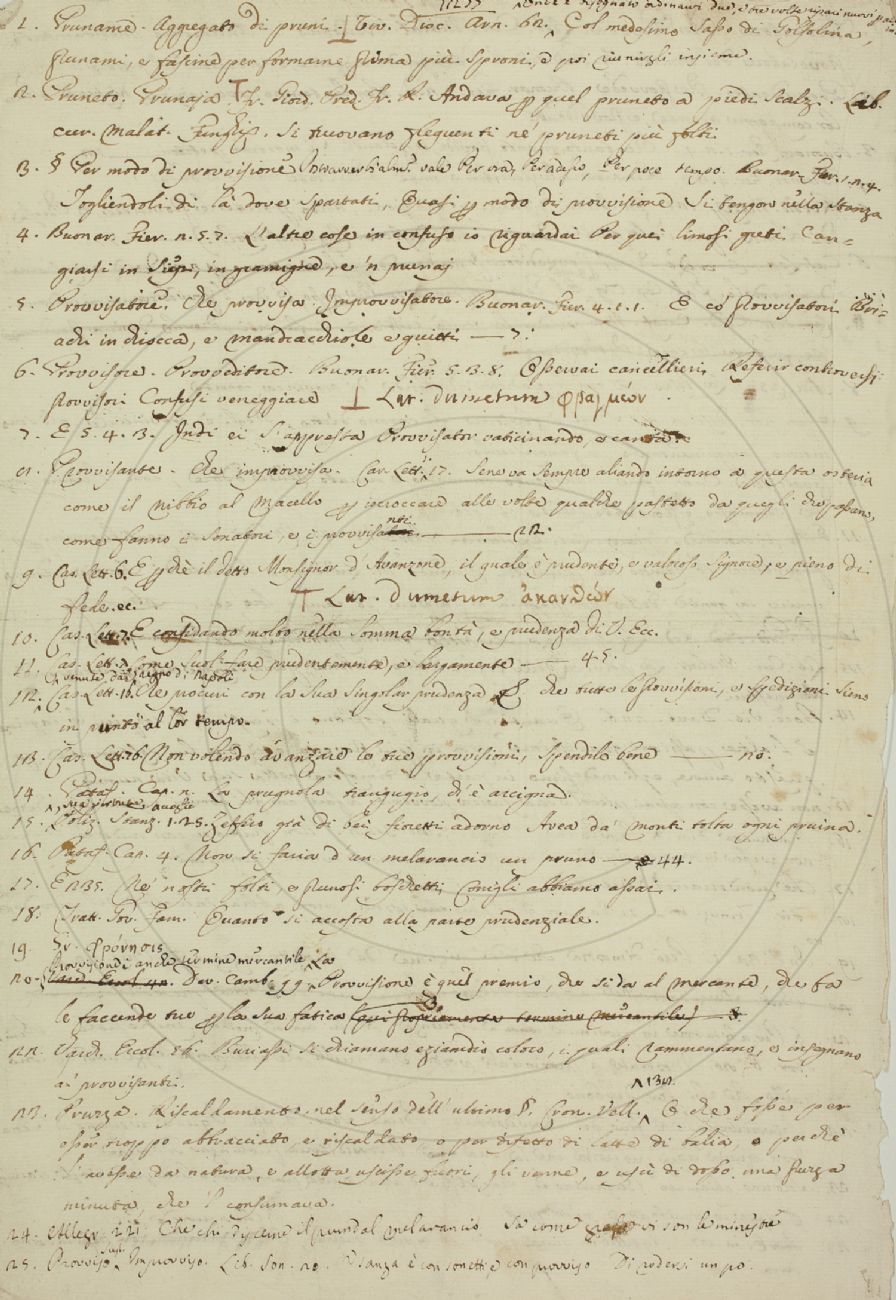 1. Pruname. Aggregato di pruni. Viv. Disc. Arn. 62. Col medesimo sasso di Golfolina,
prunami, e fascine per formarne prima più sproni, e poi riunirgli insieme.
2. Pruneto. Prunaja Fr. Giord. Pred. Fr. R. Andava p quel pruneto a piedi scalzi. Lib.
cur. malat. Si truovano frequenti ne' pruneti più folti
3. § Per modo di provvisione vale Per ora, Per adesso, Per poco tempo. Buonar. Fier. 1. 2. 4.
Togliendoli di là dove spartati, Quasi p modo di provvisione Si tengon nella stanza
4. Buonar. Fier. 2. 5. 7. L'altre cose in confuso io riguardai Per quei limosi greti Can=
giarsi in in gramigne, e 'n prunaj
5. Provvisatore. Che provvisa. Improvvisatore. Buonar. Fier. 4. 1. 1. E co' provvisatori Bri=
achi in chiocca, e mandracchiole e guitti — 7.
6. Provvisore. Provveditore. Buonar. Fier. 5. 3. 8. Osservai cancellieri, Referir controversi
Provvisori Confusi veneggiare Lat. dumetum φραγμών
7. E 5. 4. 3. Indi ei s'appresta Provvisator vaticinando, e canta
Provvisante. Che improvvisa. Car. Lett. 17. Sene va sempre aliando intorno a questa osteria
come il nibbio al macello p iscroccare alle volte qualche pastetto da quegli che passano,
come fanno i sonatori, e i provvisanti — 22.
9. Cas. Lett. 6. E p chè il detto Monsignor d'Avanzone, il quale è prudente, e valoroso signore, e pieno di
fede. ec. Lat. dumetum ἀκανθών
10. Cas. Lett. 7. E confidando molto nella somma bontà, e prudenza di V. Ecc.
11. Cas. Lett. Come suol fare prudentemente, e largamente — 45.
venute dal Regno di Napoli
12. Cas. Lett. 16. Che procuri con la sua singolar prudenza che tutte le provvisioni, e spedizioni sieno
in punto al lor tempo.
13. Cas. Lett. 76. Non volendo avanzare le tue provvisioni, spendile bene — 20.
14. Pataf. Cap. 2. La prugnola trangugio, ch'è arcigna.
15. Poliz. Stanz. 1. 25. Zeffiro già di bei fioretti adorno Avea da' monti tolta ogni pruina.
16. Pataf. Cap. 4. Non si faria d'un melarancio un pruno — 44.
17. E 235. Ne' nostri folti, e prunosi boschetti Conigli abbiamo assai.
18. Tratt. Gov. Fam. Quanto si accosta alla parte prudenziale.
19. Gr. φρόνησις
Provvisione è anche termine mercantile La
20. Dav. Camb. 99. Provvisione è quel premio, che si dà al mercante, che fa
le faccende tue p la sua fatica (qui propriamente termine mercantile) — 8
22. Vard. Ercol. 56. Buriassi si chiamano eziandio coloro, i quali rammentano, e insegnano
ai provvisanti.
23. Pruzza. Riscaldamento. nel senso dell'ultimo §. Cron. Vell. 134. O che fosse per
esser troppo abbracciato, e riscaldato, o per difetto di latte di balia, o perchè
l'avesse da natura, e allotta uscisse fuori, gli venne, e uscì di dosso una pruzza
minuta, che 'l consumava.
24. Allegr. 221. Che chi discerne il prun dal melarancio Sa come vi son le minestre
25. Provviso. Improvviso. Lib. Son. 20. Usanza è con sonetti, e con provviso Di rodersi un po'.